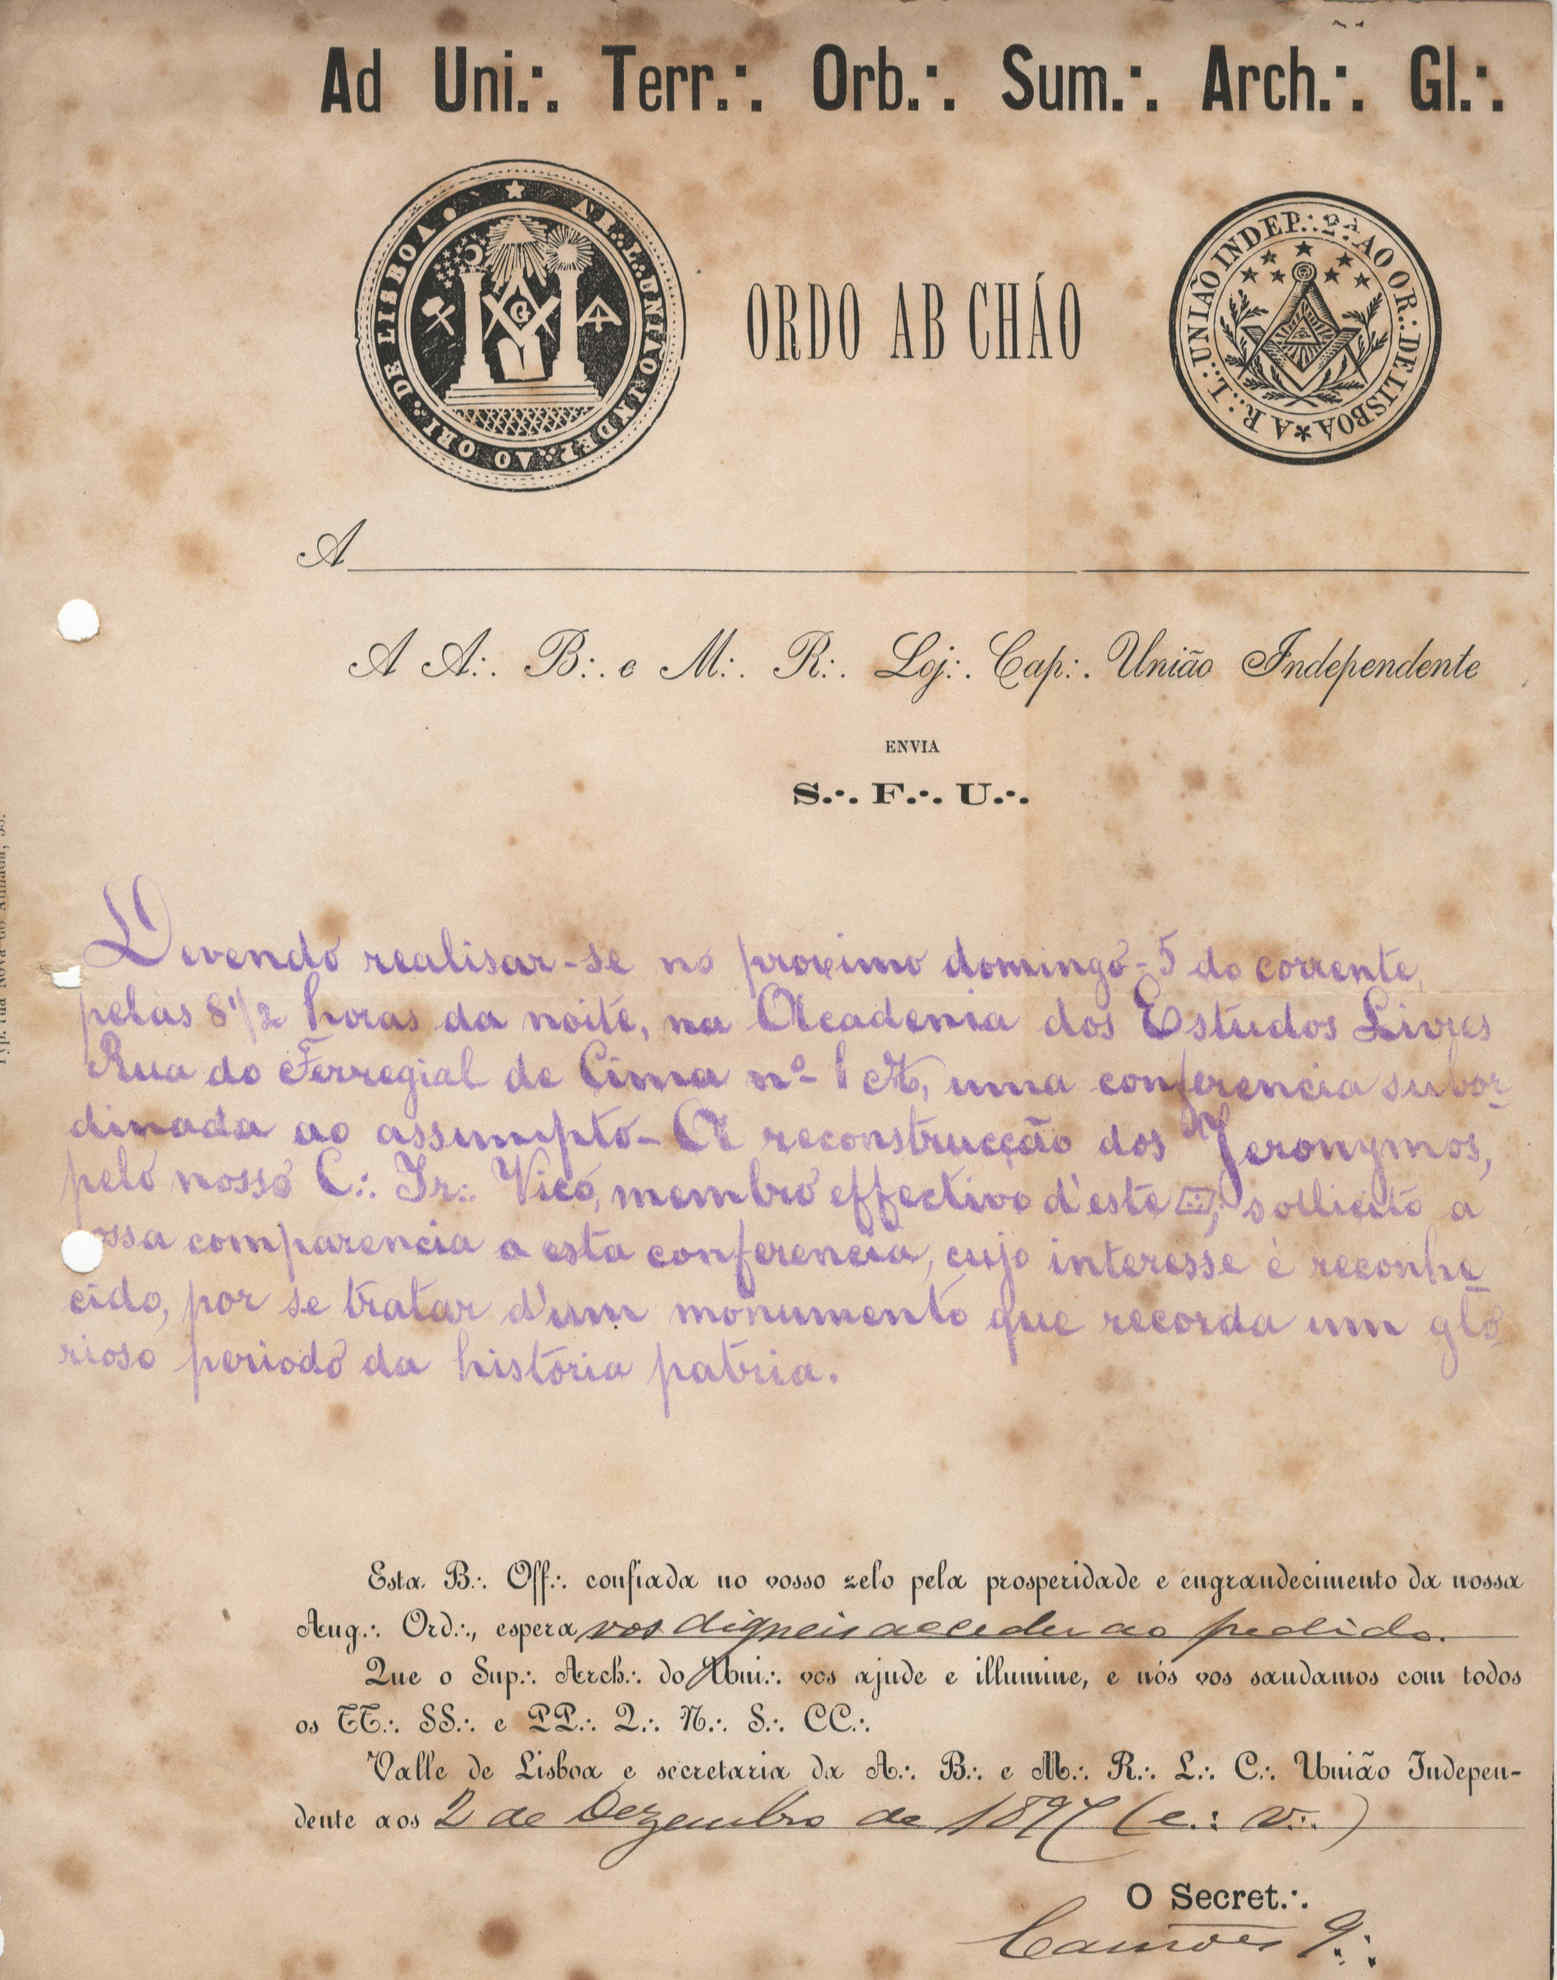 Ad Uni.·. Terr.·. Orb.·. Sum.·. Arch.·. Gl.·.
★ A R.·. L.·. UNIÃO INDEP.·. AO ORI.·. DE LISBOA
ORDO AB CHÁO
A R.·. L.·. UNIÃO INDEP.·. 2.ª AO OR.·. DE LISBOA
A
A A.·. B.·. e M.·. R.·. Loj.·. Cap.·. União Independente
ENVIA
S.·. F.·. U.·.
Typ. rua Nova do Almada, 53.
Devendo realisar-se no proximo domingo-5 do corrente,
pelas 8 1/2 horas da noite, na Academia dos Estudos Livres
Rua do Ferregial de Cima nº 1 , uma conferencia subor-
dinada ao assumpto-A reconstrucção dos Jeronymos,
pelo nosso C.·. Ir.·. Vico, membro effectivo d'este ; sollicito a
ossa comparencia a esta conferencia, cujo interesse é reconhe-
cido, por se tratar d'um monumento que recorda um glo-
rioso periodo da historia patria.
Esta B.·. Off.·. confiada no vosso zelo pela prosperidade e engrandecimento da nossa
Aug.·. Ord.·., espera vos digneis acceder ao pedido.
Que o Sup.·. Arch.·. do Uni.·. vos ajude e illumine, e nós vos saudamos com todos
os TT.·. SS.·. e PP.·. Q.·. N.·. S.·. CC.·.
Valle de Lisboa e secretaria da A.·. B.·. e M.·. R.·. L.·. C.·. União Indepen-
dente aos 2 de Dezembro de 1897 (e.·. v.·.)
O Secret.·.
Camões